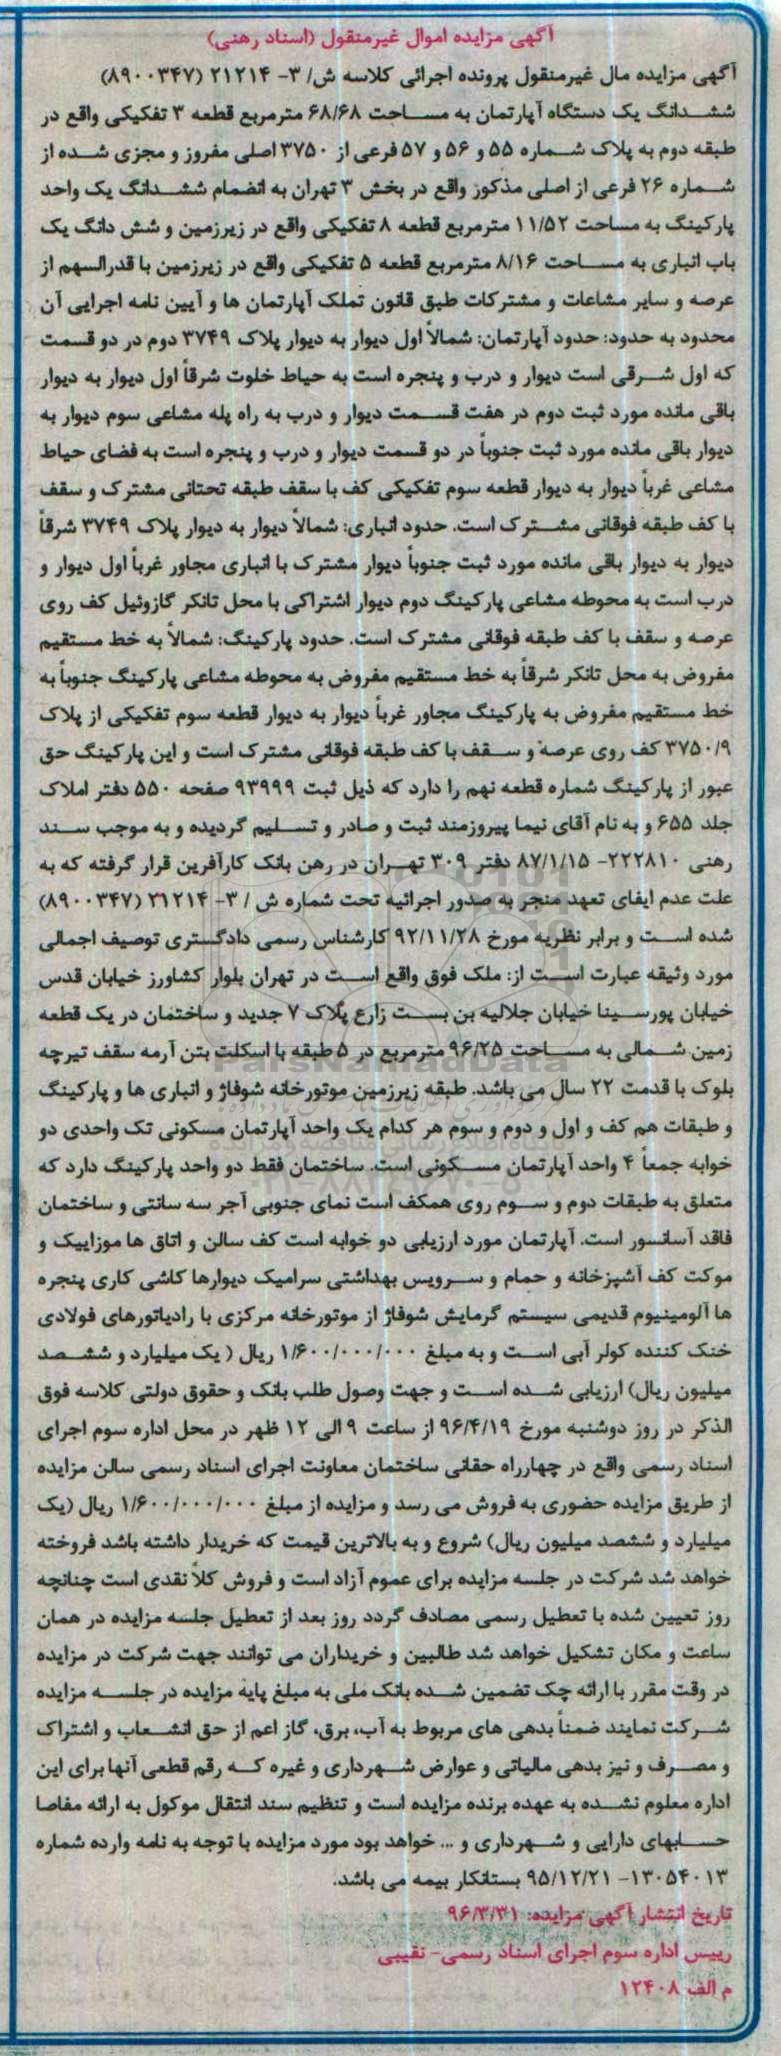 آگهی مزایده اموال غیرمنقول (اسناد رهنی)
آگهی مزایده مال غیرمنقول پرونده اجرائی کلاسه ش/ ۳- ۲۱۲۱۴ (۸۹۰۰۳۴۷)
ششدانگ یک دستگاه آپارتمان به مساحت ۶۸/۶۸ مترمربع قطعه ۳ تفکیکی واقع در
طبقه دوم به پلاک شماره ۵۵ و ۵۶ و ۵۷ فرعی از ۳۷۵۰ اصلی مفروز و مجزی شده از
شماره ۲۶ فرعی از اصلی مذکور واقع در بخش ۳ تهران به انضمام ششدانگ یک واحد
پارکینگ به مساحت ۱۱/۵۲ مترمربع قطعه ۸ تفکیکی واقع در زیرزمین و شش دانگ یک
باب انباری به مساحت ۸/۱۶ مترمربع قطعه ۵ تفکیکی واقع در زیرزمین با قدرالسهم از
عرصه و سایر مشاعات و مشترکات طبق قانون تملک آپارتمان ها و آیین نامه اجرایی آن
محدود به حدود: حدود آپارتمان: شمالاً اول دیوار به دیوار پلاک ۳۷۴۹ دوم در دو قسمت
که اول شرقی است دیوار و درب و پنجره است به حیاط خلوت شرقاً اول دیوار به دیوار
باقی مانده مورد ثبت دوم در هفت قسمت دیوار و درب به راه پله مشاعی سوم دیوار به
دیوار باقی مانده مورد ثبت جنوباً در دو قسمت دیوار و درب و پنجره است به فضای حیاط
مشاعی غرباً دیوار به دیوار قطعه سوم تفکیکی کف با سقف طبقه تحتانی مشترک و سقف
با کف طبقه فوقانی مشترک است. حدود انباری: شمالاً دیوار به دیوار پلاک ۳۷۴۹ شرقاً
دیوار به دیوار باقی مانده مورد ثبت جنوباً دیوار مشترک با انباری مجاور غرباً اول دیوار و
درب است به محوطه مشاعی پارکینگ دوم دیوار اشتراکی با محل تانکر گازوئیل کف روی
عرصه و سقف با کف طبقه فوقانی مشترک است. حدود پارکینگ: شمالاً به خط مستقیم
مفروض به محل تانکر شرقاً به خط مستقیم مفروض به محوطه مشاعی پارکینگ جنوباً به
خط مستقیم مفروض به پارکینگ مجاور غرباً دیوار به دیوار قطعه سوم تفکیکی از پلاک
۳۷۵۰/۹ کف روی عرصه و سقف با کف طبقه فوقانی مشترک است و این پارکینگ حق
عبور از پارکینگ شماره قطعه نهم را دارد که ذیل ثبت ۹۳۹۹۹ صفحه ۵۵۰ دفتر املاک
جلد ۶۵۵ و به نام آقای نیما پیروزمند ثبت و صادر و تسلیم گردیده و به موجب سند
رهنی ۲۲۲۸۱۰- ۸۷/۱/۱۵ دفتر ۳۰۹ تهران در رهن بانک کارآفرین قرار گرفته که به
علت عدم ایفای تعهد منجر به صدور اجرائیه تحت شماره ش / ۳- ۲۱۲۱۴ (۸۹۰۰۳۴۷)
شده است و برابر نظریه مورخ ۹۲/۱۱/۲۸ کارشناس رسمی دادگستری توصیف اجمالی
مورد وثیقه عبارت است از: ملک فوق واقع است در تهران بلوار کشاورز خیابان قدس
خیابان پورسینا خیابان جلالیه بن بست زارع پلاک ۷ جدید و ساختمان در یک قطعه
زمین شمالی به مساحت ۹۶/۲۵ مترمربع در ۵ طبقه با اسکلت بتن آرمه سقف تیرچه
بلوک با قدمت ۲۲ سال می باشد. طبقه زیرزمین موتورخانه شوفاژ و انباری ها و پارکینگ
و طبقات هم کف و اول و دوم و سوم هر کدام یک واحد آپارتمان مسکونی تک واحدی دو
خوابه جمعاً ۴ واحد آپارتمان مسکونی است. ساختمان فقط دو واحد پارکینگ دارد که
متعلق به طبقات دوم و سوم روی همکف است نمای جنوبی آجر سه سانتی و ساختمان
فاقد آسانسور است. آپارتمان مورد ارزیابی دو خوابه است کف سالن و اتاق ها موزاییک و
موکت کف آشپزخانه و حمام و سرویس بهداشتی سرامیک دیوارها کاشی کاری پنجره
ها آلومینیوم قدیمی سیستم گرمایش شوفاژ از موتورخانه مرکزی با رادیاتورهای فولادی
خنک کننده کولر آبی است و به مبلغ ۱/۶۰۰/۰۰۰/۰۰۰ ریال ( یک میلیارد و ششصد
میلیون ریال) ارزیابی شده است و جهت وصول طلب بانک و حقوق دولتی کلاسه فوق
الذکر در روز دوشنبه مورخ ۹۶/۴/۱۹ از ساعت ۹ الی ۱۲ ظهر در محل اداره سوم اجرای
اسناد رسمی واقع در چهارراه حقانی ساختمان معاونت اجرای اسناد رسمی سالن مزایده
از طریق مزایده حضوری به فروش می رسد و مزایده از مبلغ ۱/۶۰۰/۰۰۰/۰۰۰ ریال (یک
میلیارد و ششصد میلیون ریال) شروع و به بالاترین قیمت که خریدار داشته باشد فروخته
خواهد شد شرکت در جلسه مزایده برای عموم آزاد است و فروش کلاً نقدی است چنانچه
روز تعیین شده با تعطیل رسمی مصادف گردد روز بعد از تعطیل جلسه مزایده در همان
ساعت و مکان تشکیل خواهد شد طالبین و خریداران می توانند جهت شرکت در مزایده
در وقت مقرر با ارائه چک تضمین شده بانک ملی به مبلغ پایه مزایده در جلسه مزایده
شرکت نمایند ضمناً بدهی های مربوط به آب، برق، گاز اعم از حق انشعاب و اشتراک
و مصرف و نیز بدهی مالیاتی و عوارض شهرداری و غیره که رقم قطعی آنها برای این
اداره معلوم نشده به عهده برنده مزایده است و تنظیم سند انتقال موکول به ارائه مفاصا
حسابهای دارایی و شهرداری و ... خواهد بود مورد مزایده با توجه به نامه وارده شماره
۱۳۰۵۴۰۱۳- ۹۵/۱۲/۲۱ بستانکار بیمه می باشد.
تاریخ انتشار آگهی مزایده: ۹۶/۳/۳۱
رییس اداره سوم اجرای اسناد رسمی- نقیبی
م الف ۱۲۴۰۸
ParsNamadData